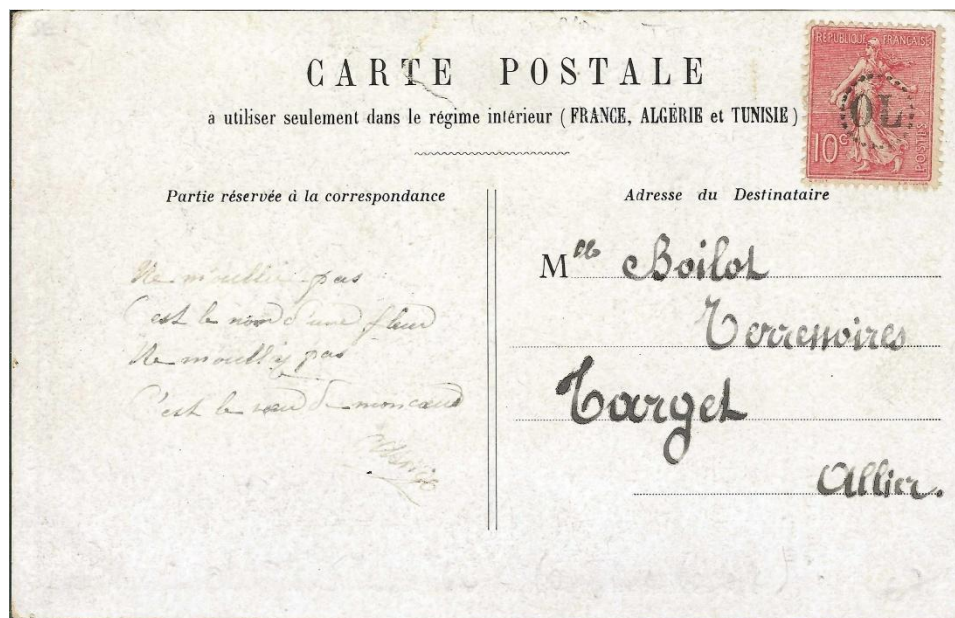 CARTE POSTALE
à utiliser seulement dans le régime intérieur (FRANCE, ALGÉRIE et TUNISIE)
REPUBLIQUE FRANÇAISE
OL
10c
POSTES
Partie réservée à la correspondance
Ne m'oublie pas
C'est le nom d'une fleur
Ne m'oubliy pas
C'est le vœu de mon cœur
Adresse du Destinataire
Mlle Boilot
Terrenoires
Target
Allier.